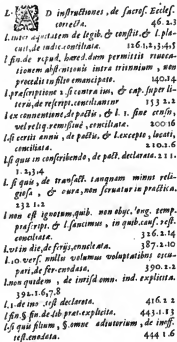 AD instructiones, de sacros. Eccles.
correcta. 46.2.3
l. inter de legib. & constit. & l. pla-
cuit, de indic. conciliata. 126.1.2,3,4,5
l. fin. de repud. hæred. dum permissis reuoca-
tionem absti nitonis intra triennium, non
procedit in filio emancipato. 140.14
l. præscriptione 2. si contra ius, & cap. super li-
teris, de rescript. conciliantur 153 2.2
l. ex conuentione, de pactis, & l. 1. fine censu
vel reliq. remiss. conciliatæ. 200 16
l. si certis annis, de pactis, & l. excepto, locati,
conciliata. 210.1.6
l. si quis in conscribendo, de pact. declarata. 211.
1.2,3.4
l. si quis, de transact. tanquam minus reli-
giosa, & cura, non seruatur in practica.
232 1.2
l. non est ignotum, quib. non obiic. long. temp.
præscript. & l. sancimus, in quib. caus. rest.
conciliata. 326.2.14
l. vt in die, de feriis, enucleata. 387.2.10
l. 10. vers. nullu volumus voluptatibus occu-
pari, de fer. enodata. 390.2.2
l. non quidem, de iurisd. omn. ind. explicita.
392.1.6,7.8
l. 1. de ino . test declarata. 416.2 2
l. fin. § fin. de lib præt. explicita. 443.1.13
l. si quis filium, §. omne adiutorium, de inoff.
test. enodata. 444 1.6